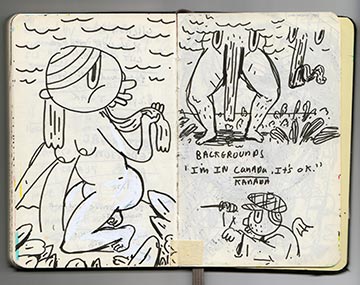 BACKGROUNDS
"I'm IN CANADA. It's OK."
KANADA